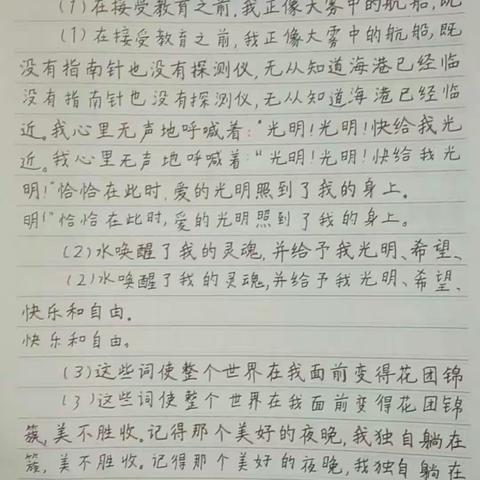 (1)在接受教育之前,我正像大雾中的航船,既
(1)在接受教育之前,我正像大雾中的航船,既
没有指南针也没有探测仪,无从知道海港已经临
没有指南针也没有探测仪,无从知道海港已经临
近。我心里无声地呼喊着:“光明!光明!快给我光
近。我心里无声地呼喊着:“光明!光明!快给我光
明!”恰恰在此时,爱的光明照到了我的身上。
明!”恰恰在此时,爱的光明照到了我的身上。
(2)水唤醒了我的灵魂,并给予我光明、希望、
(2)水唤醒了我的灵魂,并给予我光明、希望、
快乐和自由。
快乐和自由。
(3)这些词使整个世界在我面前变得花团锦
(3)这些词使整个世界在我面前变得花团锦
簇,美不胜收。记得那个美好的夜晚,我独自躺在
簇,美不胜收。记得那个美好的夜晚,我独自躺在